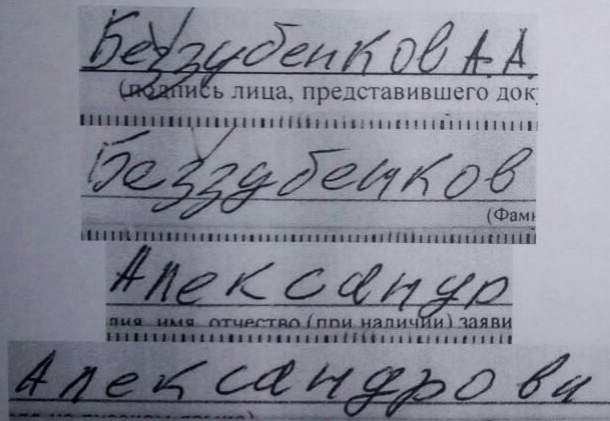 Беззубенков А.А.
(подпись лица, представившего док
Беззубенков
(Фам
Александр
имя, отчество (при наличии) заяви
Александрови